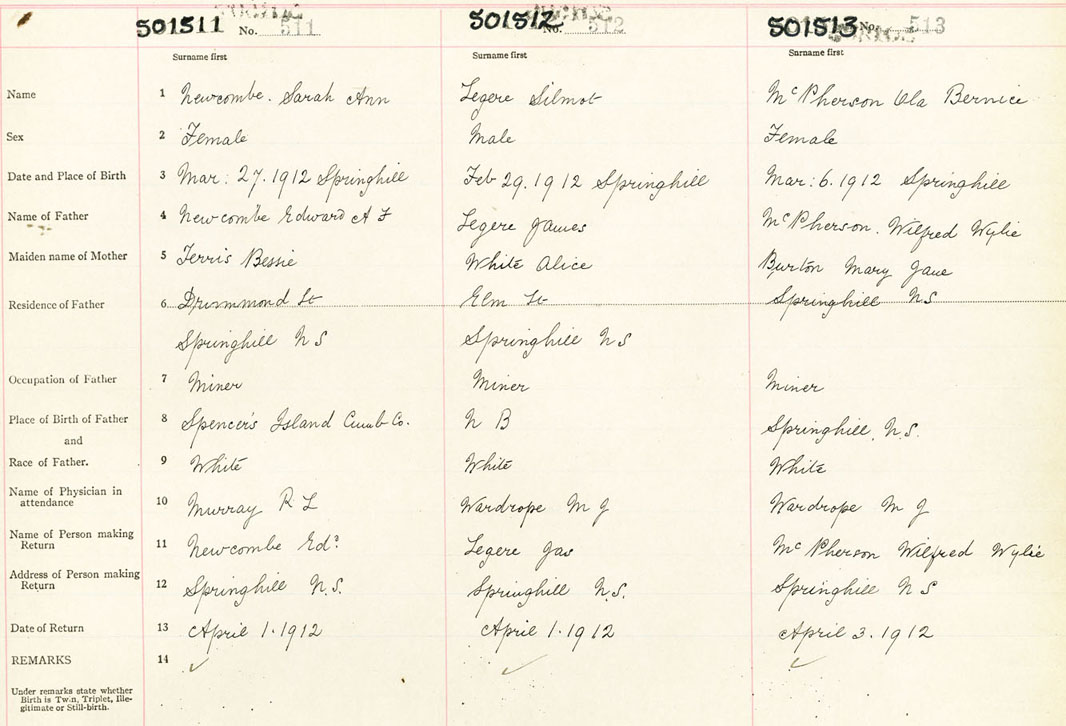 501511 No. 511 501512 No. 512 501513 No. 513
Surname first Surname first Surname first
Name 1 Newcombe. Sarah Ann Legere Silmot McPherson Ola Bernice
Sex 2 Female Male Female
Date and Place of Birth 3 Mar: 27. 1912 Springhill Feb 29. 1912 Springhill Mar: 6. 1912 Springhill
Name of Father 4 Newcombe Edward A F Legere James McPherson. Wilfred Wylie
Maiden name of Mother 5 Ferris Bessie White Alice Burton Mary Jane
Residence of Father 6 Drummond St Elm St Springhill NS
Springhill N S Springhill N S
Occupation of Father 7 Miner Miner Miner
Place of Birth of Father 8 Spencer's Island Cumb Co. N B Springhill N.S.
and
Race of Father. 9 White White White
Name of Physician in
attendance 10 Murray R L Wardrope M J Wardrope M J
Name of Person making
Return 11 Newcombe Edd Legere Jas McPherson Wilfred Wylie
Address of Person making
Return 12 Springhill N.S. Springhill N.S. Springhill N S
Date of Return 13 April 1. 1912 April 1. 1912 April 3. 1912
REMARKS 14 ✓ ✓ ✓
Under remarks state whether
Birth is Twin, Triplet, Ille-
gitimate or Still-birth.